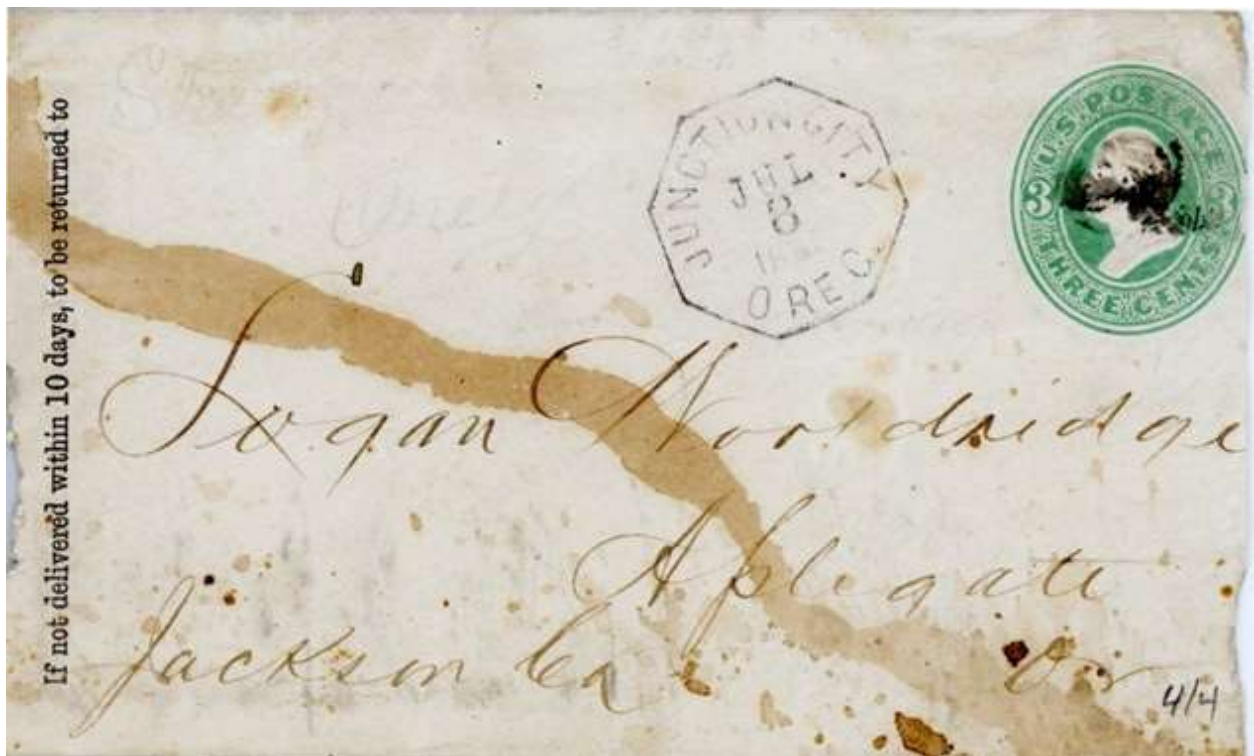 If not delivered within 10 days, to be returned to
JUNCTION CITY
JUL
8
OREG.
U.S. POSTAGE
3 3
THREE CENTS
Logan Wooldridge
Aplegate
Jackson Co
Or
4/4